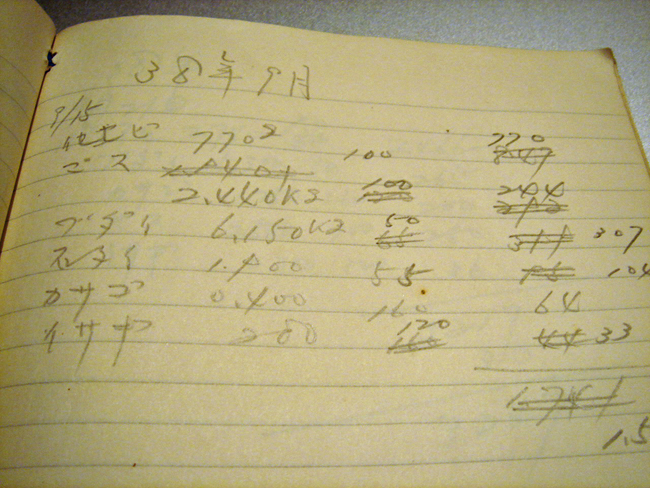 38年9月
9/15
770
エビ 770g 100 847
ゴス
2.440Kg 100 244
212
ブダイ 6.150Kg 50 65 311 307
ダイ 1.900 55 104
カサゴ 0.400 160 64
イサギ 280 120 160 44 33
1.741
1.5